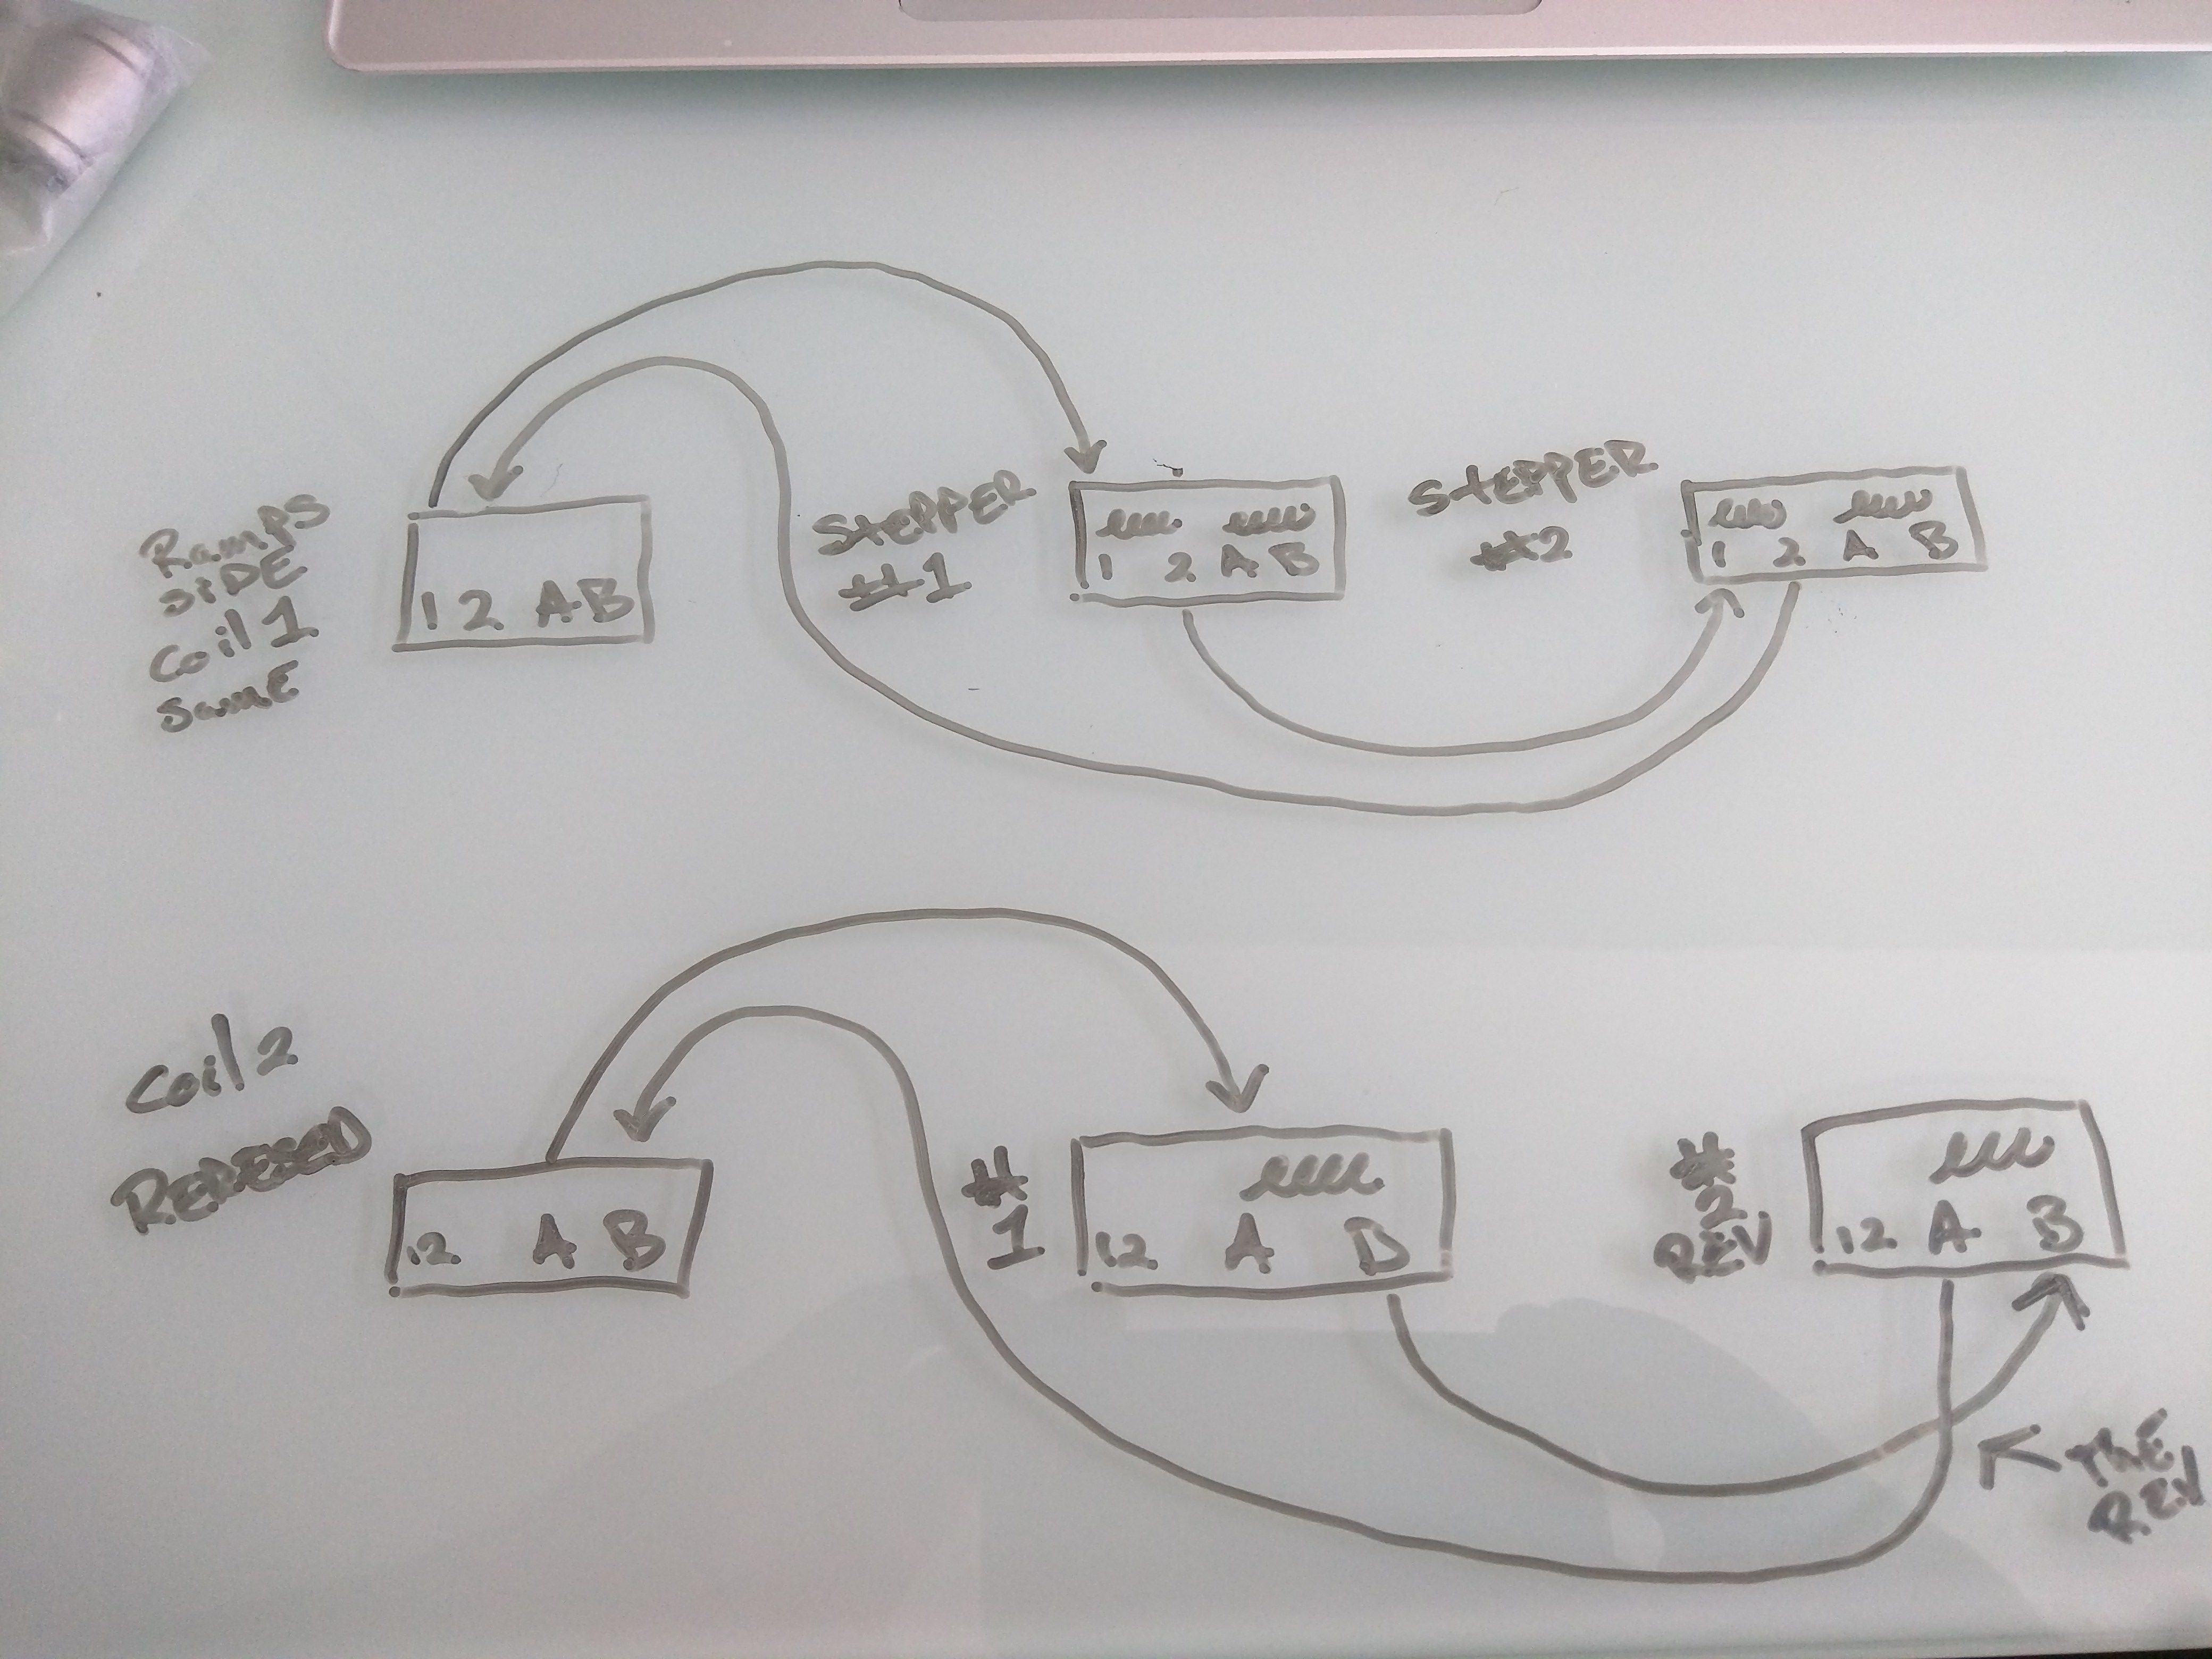 Ramps
SIDE
Coil 1
SamE
1 2 A B
StEPPER
#1
1 2 A B
StEPPER
#2
1 2 A B
Coil 2
12 A B
#
1
12 A B
#
2
REV
12 A B
THE
REV